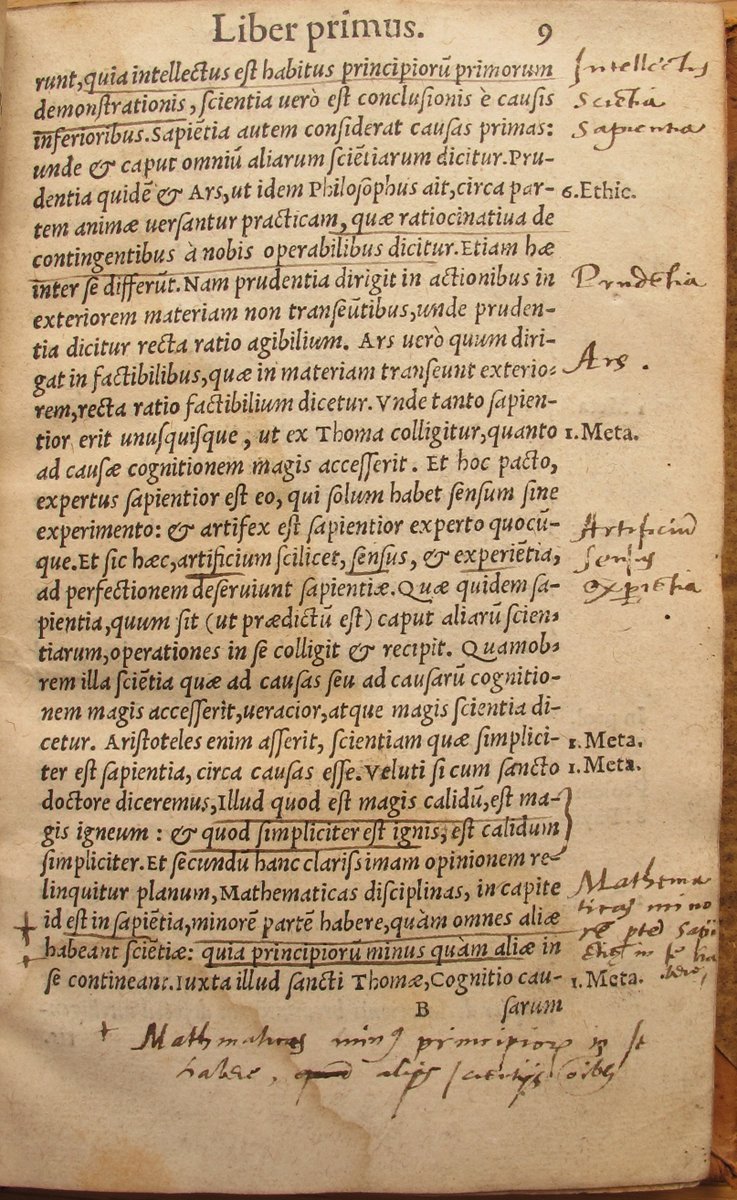 Liber primus. 9
runt,quia intellectus est habitus principiorũ primorum
Intellectus
demonstrationis, scientia uerò est conclusionis è causis
Sciẽtia
inferioribus.Sapiẽtia autem considerat causas primas:
Sapientia
unde & caput omniũ aliarum sciẽtiarum dicitur.Pru-
dentia quidẽ & Ars,ut idem Philosophus ait,circa par-
6.Ethic.
tem animæ uersantur practicam, quæ ratiocinatiua de
contingentibus à nobis operabilibus dicitur.Etiam hæ
inter se differũt.Nam prudentia dirigit in actionibus in
Prudẽtia
exteriorem materiam non transeũtibus,unde pruden-
tia dicitur recta ratio agibilium. Ars uerò quum diri-
gat in factibilibus,quæ in materiam transeunt exterio-
Ars.
rem,recta ratio factibilium dicetur.Vnde tanto sapien-
tior erit unusquisque, ut ex Thoma colligitur,quanto
1.Meta.
ad causæ cognitionem magis accesserit. Et hoc pacto,
expertus sapientior est eo, qui solum habet sensum sine
experimento: & artifex est sapientior experto quocũ-
Artificiũ
que.Et sic hæc,artificium scilicet, sensus, & experiẽtia,
sensus
ad perfectionem deseruiunt sapientiæ.Quæ quidem sa-
experiẽtia
pientia,quum sit (ut prædictũ est) caput aliarũ scien-
tiarum,operationes in se colligit & recipit. Quamob-
rem illa sciẽtia quæ ad causas seu ad causarũ cognitio-
nem magis accesserit,ueracior,atque magis scientia di-
cetur. Aristoteles enim asserit, scientiam quæ simplici-
1.Meta.
ter est sapientia, circa causas esse.Veluti si cum sancto
1.Meta.
doctore diceremus,Illud quod est magis calidũ,est ma-
gis igneum : & quod simpliciter est ignis, est calidum
simpliciter.Et secundũ hanc clarissimam opinionem re-
linquitur planum,Mathematicas disciplinas, in capite
Mathema
id est in sapiẽtia,minorẽ partẽ habere,quàm omnes aliæ
ticas mino
habeant sciẽtiæ: quia principiorũ minus quàm aliæ in
rẽ ptẽ sapi
se contineant.Iuxta illud sancti Thomæ,Cognitio cau-
ẽtiæ in se ha
bere,
1.Meta.
B sarum
Mathematicas min9 principiorum in se
habere, alijs scientijs oibus